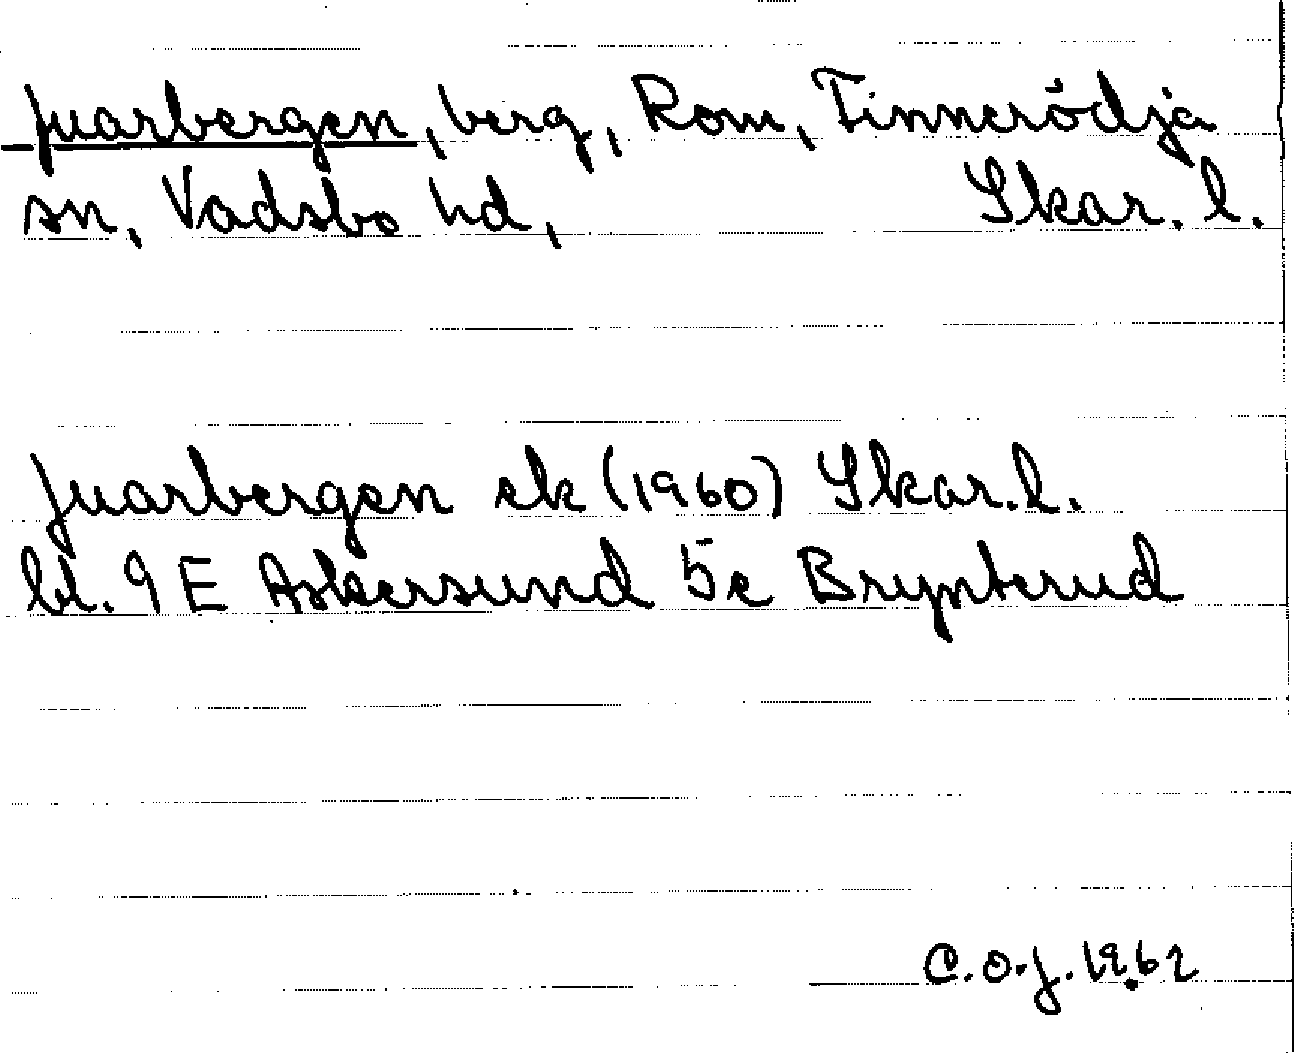 Juarbergen, berg, Rom, Tinnerödja
sn, Vadsbo hd, Skar. l.
Juarbergen ek (1960) Skar. l.
bl. 9 E Askersund 5c Brynterud
C.O.J. 1962